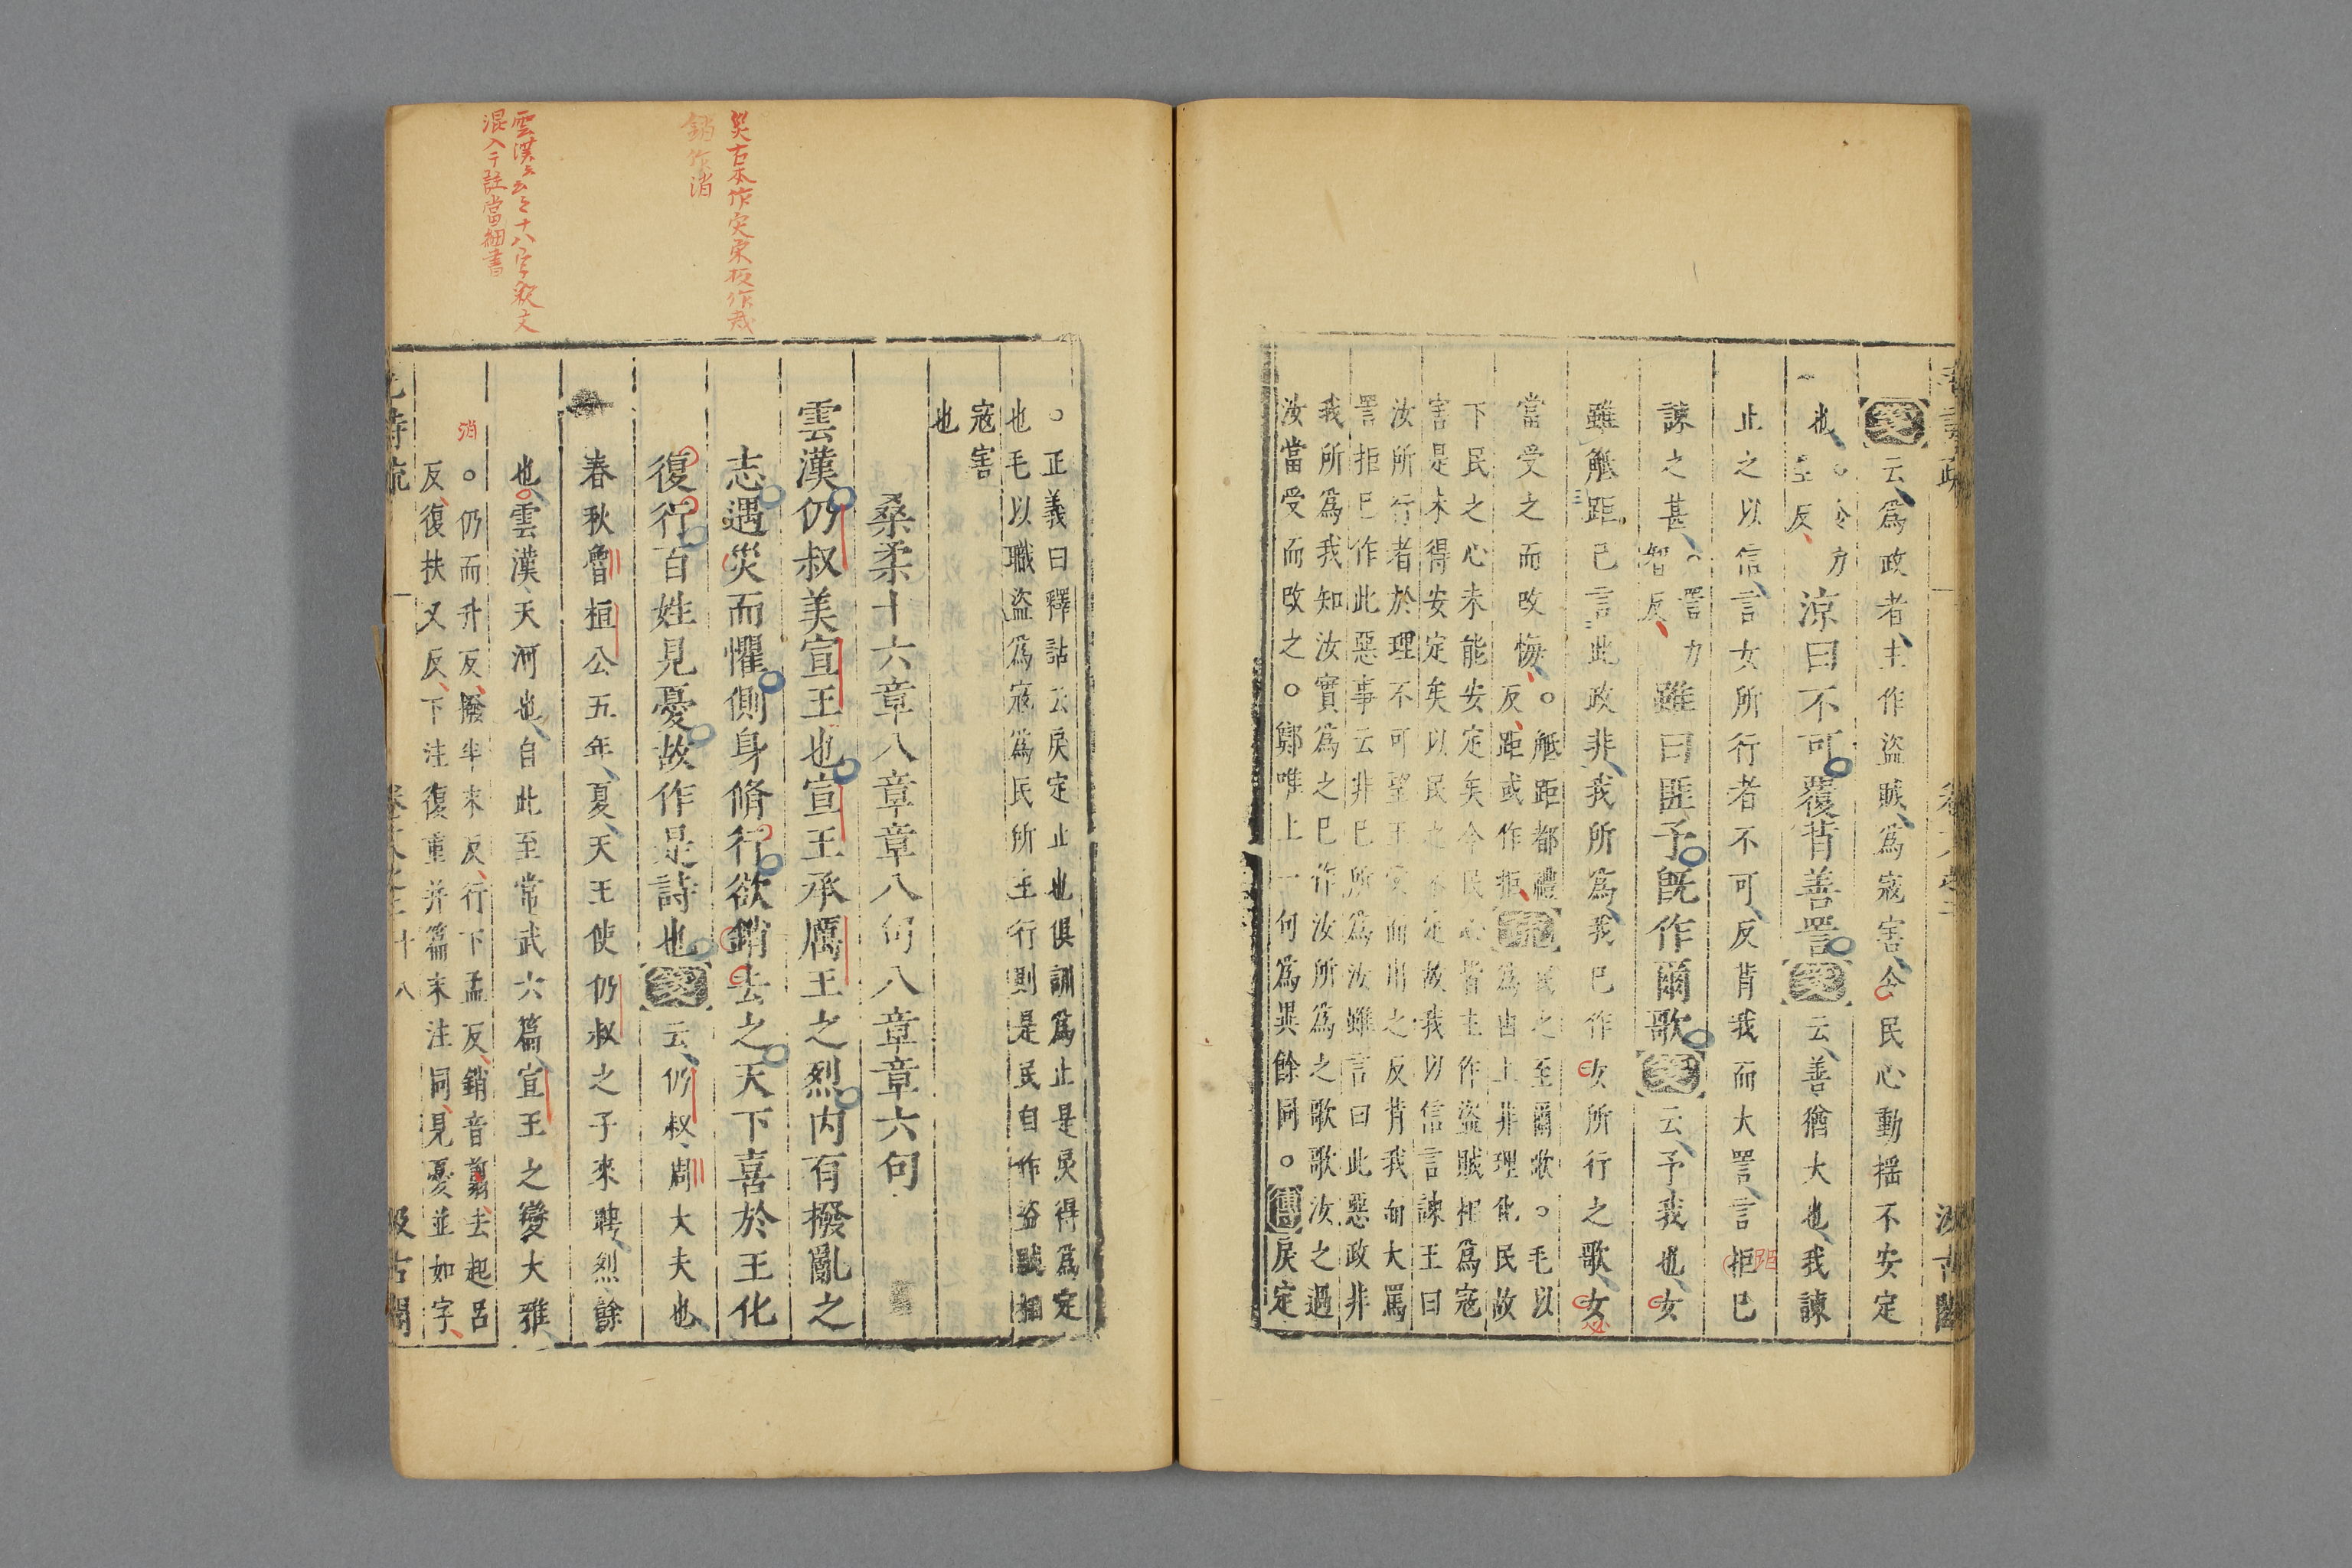 箋云爲政者主作盜賊爲寇害令民心動揺不安定
也○令力呈反涼曰不可覆背善詈箋云善猶大也我諫
止之以信言女所行者不可反背我而大詈言拒巳
距
諫之甚○詈力智反雖曰匪予旣作爾歌箋云予我也女
雖觝距巳言此政非我所爲我巳作女所行之歌女
必
當受之而改悔○觝距都禮反距或作拒疏民之至爾歌○毛以爲由上非理化民故
下民之心未能安定矣今民心皆主作盜賊相爲寇
害是未得安定矣以民之不定故我以信言諫王曰
汝所行者於理不可望王受而用之反背我而大罵
詈拒巳作此惡事云非巳所爲汝雖言曰此惡政非
我所爲我知汝實爲之巳作汝所爲之歌歌汝之過
汝當受而改之○鄭唯上一句爲異餘同○傳戾定
○正義曰釋詁云戾定止也俱訓爲止是戾得爲定
也毛以職盜爲寇爲民所主行則是民自作盜賊相
寇害
也
桑柔十六章八章章八句八章章六句
雲漢仍叔美宣王也宣王承厲王之烈内有撥亂之
志遇災而懼側身脩行欲銷去之天下喜於王化
復行百姓見憂故作是詩也箋云仍叔周大夫也
春秋魯桓公五年夏天王使仍叔之子來聘烈餘
也雲漢天河也自此至常武六篇宣王之變大雅
○仍而升反撥半末反行下孟反銷音翦去起呂
消
反復扶又反下注復重并篇末注同見憂並如字
災古本作灾宋板作烖
銷作消
雲漢云云十八字釈文
混入于註當細書
汲古閣